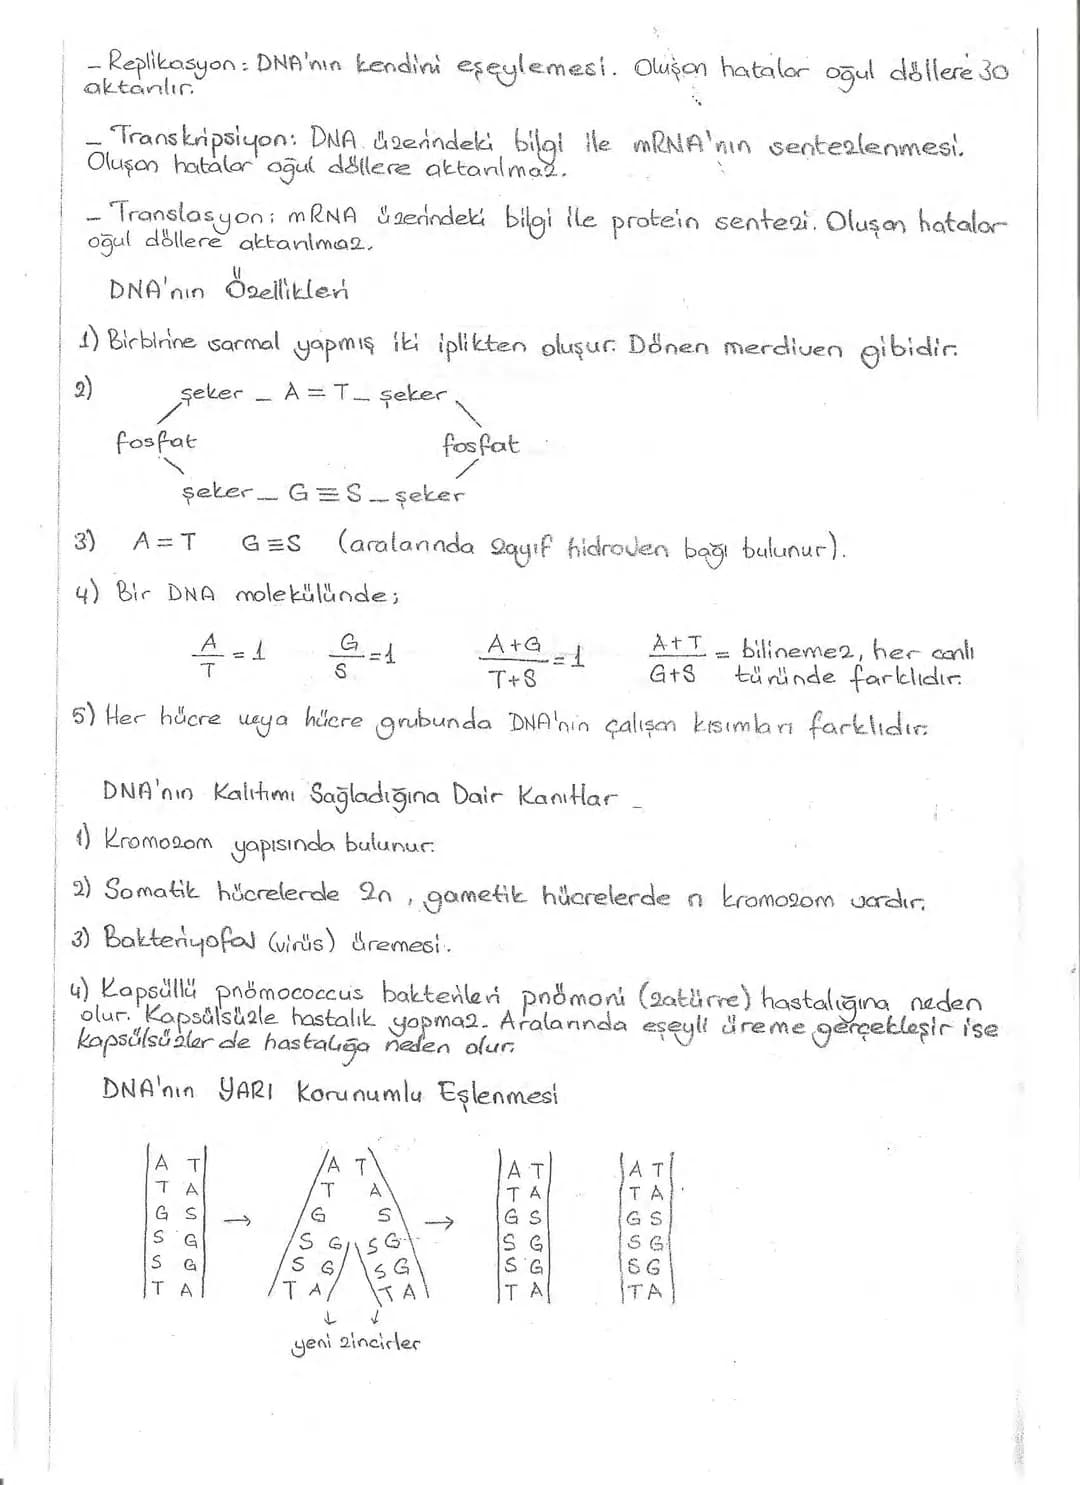 – Replikasyon: DNA'nın kendini eşeylemesi. Oluşan hatalar oğul döllere 30
aktarılır.
– Transkripsiyon: DNA üzerindeki bilgi ile mRNA'nın sentezlenmesi.
Oluşan hatalar oğul döllere aktarılmaz.
– Translasyon: mRNA üzerindeki bilgi ile protein sentezi. Oluşan hatalar
oğul döllere aktarılmaz.
DNA'nın Özellikleri
1) Birbirine sarmal yapmış iki iplikten oluşur. Dönen merdiven gibidir.
2) şeker – A = T – şeker
fosfat fosfat
şeker – G ≡ S – şeker
3) A = T G ≡ S (aralarında zayıf hidrojen bağı bulunur).
4) Bir DNA molekülünde;
A/T = 1 G/S = 1 A+G/T+S = 1 A+T/G+S = bilinemez, her canlı
türünde farklıdır.
5) Her hücre veya hücre grubunda DNA'nın çalışan kısımları farklıdır.
DNA'nın Kalıtımı Sağladığına Dair Kanıtlar –
1) Kromozom yapısında bulunur.
2) Somatik hücrelerde 2n, gametik hücrelerde n kromozom vardır.
3) Bakteriyofaj (virüs) üremesi.
4) Kapsüllü pnömococcus bakterileri pnömoni (zatürre) hastalığına neden
olur. Kapsülsüzle hastalık yapmaz. Aralarında eşeyli üreme gerçekleşir ise
kapsülsüzler de hastalığa neden olur.
DNA'nın YARI Korunumlu Eşlenmesi
A T A T A T A T
T A T A T A T A
G S → G S → G S G S
S G S G S G S G S G
S G S G S G S G S G
T A T A T A T A T A
↓ ↓
yeni zincirler